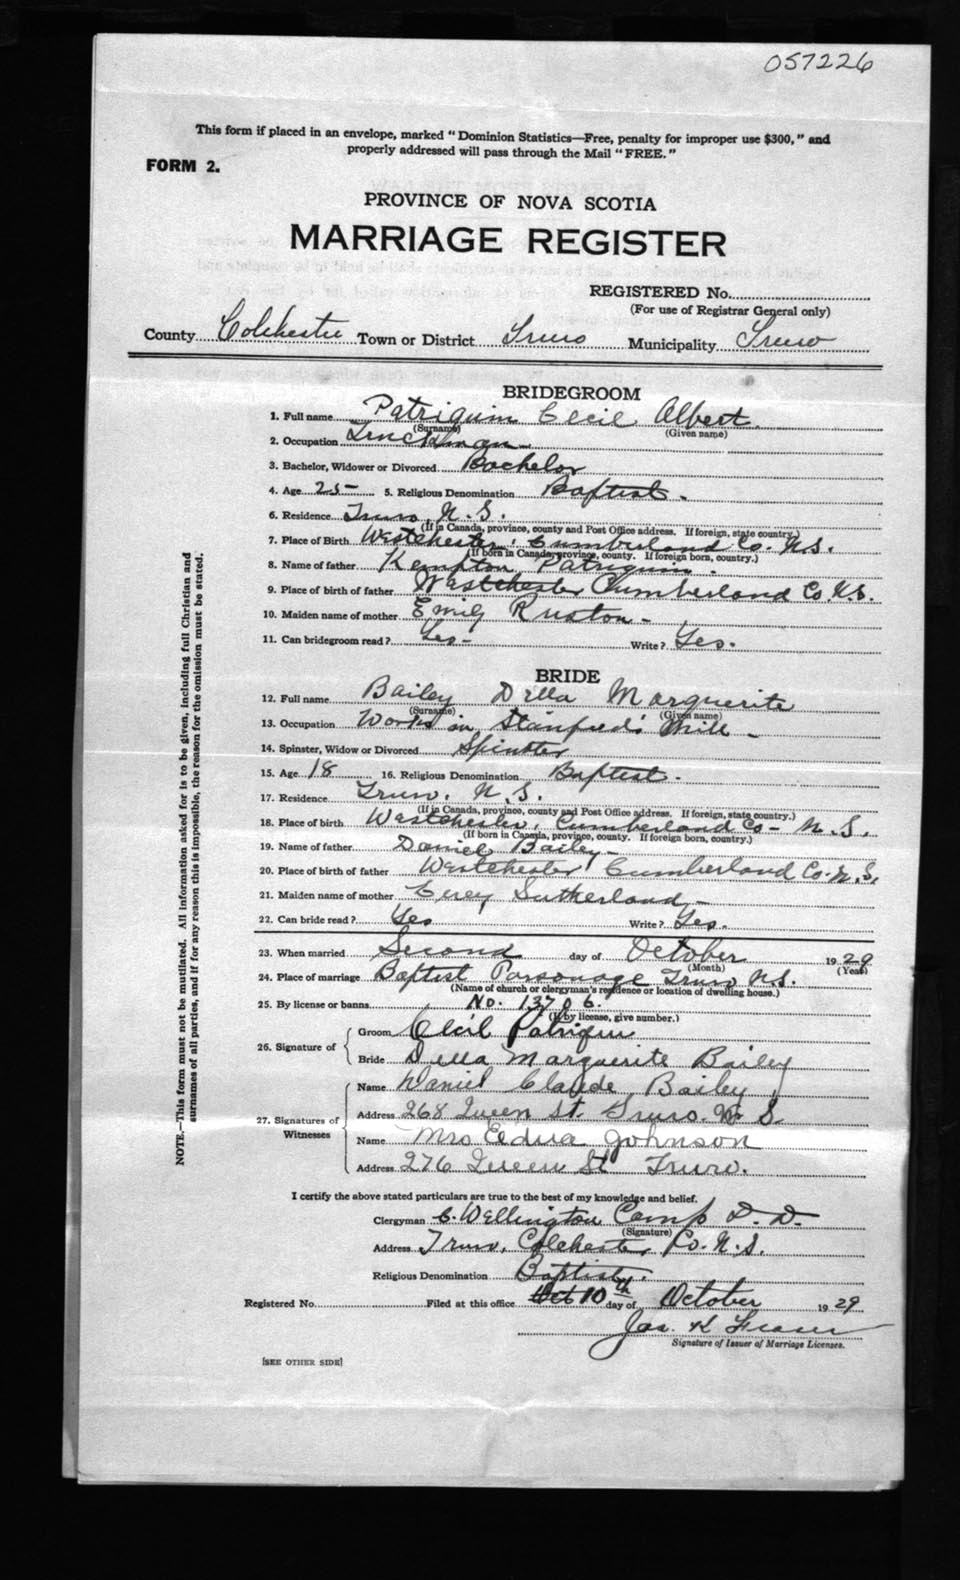 057226
This form if placed in an envelope, marked "Dominion Statistics—Free, penalty for improper use $300," and
properly addressed will pass through the Mail "FREE."
FORM 2.
PROVINCE OF NOVA SCOTIA
MARRIAGE REGISTER
REGISTERED No.
(For use of Registrar General only)
County Colchester Town or District Truro Municipality Truro
BRIDEGROOM
1. Full name Patriquin Cecil Albert
(Surname) (Given name)
2. Occupation Truckman
3. Bachelor, Widower or Divorced Bachelor
4. Age 25 5. Religious Denomination Baptist.
6. Residence Truro N.S.
(If in Canada, province, county and Post Office address. If foreign, state country.)
7. Place of Birth Westchester, Cumberland Co. N.S.
(If born in Canada, province, county. If foreign born, country.)
8. Name of father Kempton Patriquin.
9. Place of birth of father Westchester Cumberland Co. N.S.
10. Maiden name of mother Emily Ruston
11. Can bridegroom read? Yes Write? Yes.
BRIDE
12. Full name Bailey Della Marguerite
(Surname) (Given name)
13. Occupation Works in Stanfield's Mill
14. Spinster, Widow or Divorced Spinster
15. Age 18 16. Religious Denomination Baptist.
17. Residence Truro. N.S.
(If in Canada, province, county and Post Office address. If foreign, state country.)
18. Place of birth Westchester, Cumberland Co - N.S.
(If born in Canada, province, county. If foreign born, country.)
19. Name of father Daniel Bailey
20. Place of birth of father Westchester Cumberland Co. N.S.
21. Maiden name of mother Sutherland
22. Can bride read? Yes Write? Yes.
23. When married Second day of October 1929
(Month) (Year)
24. Place of marriage Baptist Parsonage Truro N.S.
(Name of church or clergyman's residence or location of dwelling house.)
25. By license or banns No. 13706.
(If by license, give number.)
26. Signature of Groom Cecil Patriquin
Bride Della Marguerite Bailey
27. Signatures of Witnesses Name Daniel Claude Bailey
Address 268 Queen St. Truro. N S
Name Mrs Edna Johnson
Address 276 Queen St Truro.
I certify the above stated particulars are true to the best of my knowledge and belief.
Clergyman C. Wellington Camp D. D.
(Signature)
Address Truro, Colchester Co. N.S.
Religious Denomination Baptist.
Registered No. Filed at this office Oct 10th day of October 1929
Jas. K Fraser
Signature of Issuer of Marriage Licenses.
[SEE OTHER SIDE]
NOTE.—This form must not be mutilated. All information asked for is to be given, including full Christian and
surnames of all parties, and if for any reason this is impossible, the reason for the omission must be stated.